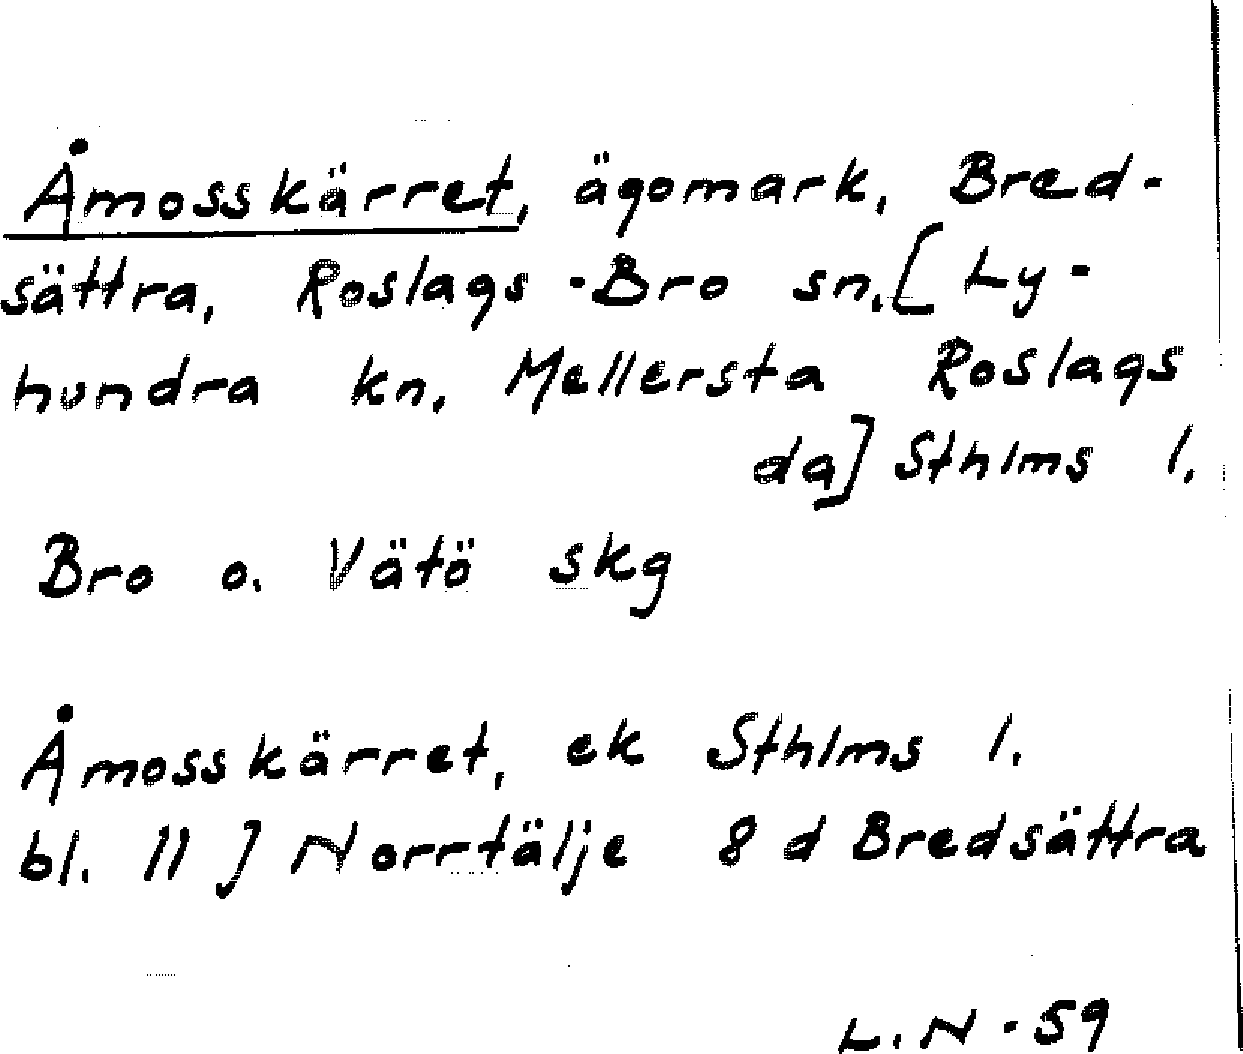 Åmosskärret, ägomark, Bred-
sättra, Roslags-Bro sn. [Ly-
hundra kn, Mellersta Roslags
da] Sthlms l.
Bro o. Vätö skg
Åmosskärret, ek Sthlms l.
bl. 11 J Norrtälje 8 d Bredsättra
L.N-59